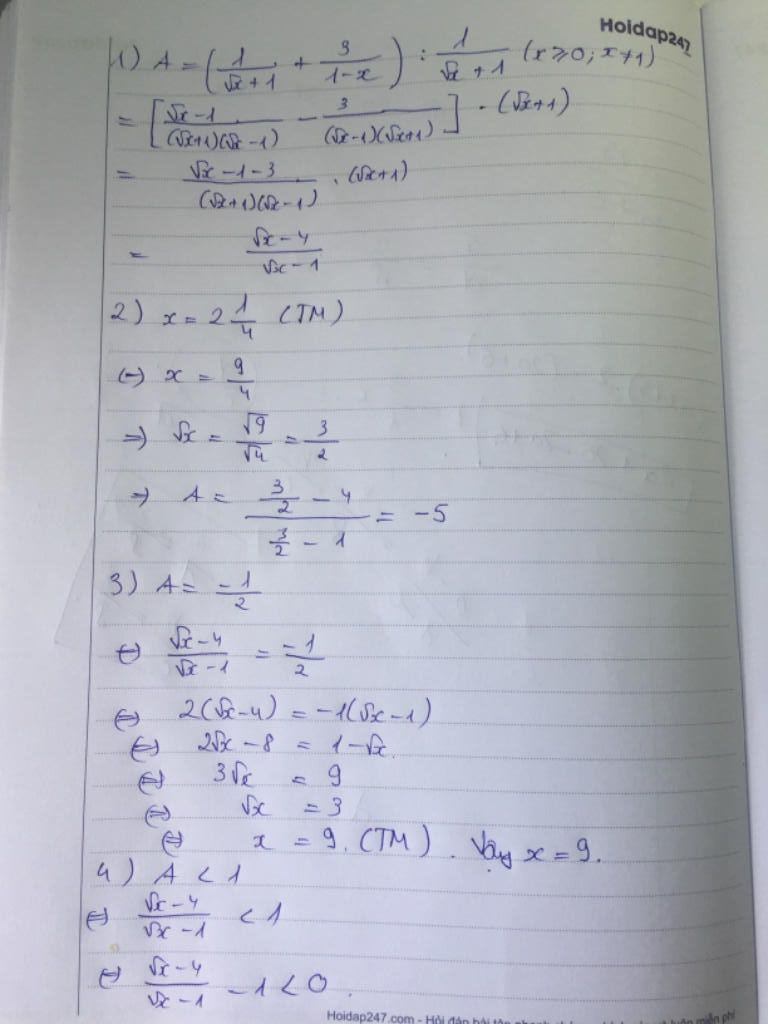 Hoidap247
1) A = (1/(√x+1) + 3/(1-x)) : 1/(√x+1) (x ≥ 0; x ≠ 1)
= [(√x-1)/((√x+1)(√x-1)) - 3/((√x-1)(√x+1))] . (√x+1)
= (√x-1-3)/((√x+1)(√x-1)) . (√x+1)
= (√x-4)/(√x-1)
2) x = 2 1/4 (TM)
(-) x = 9/4
=> √x = √9/√4 = 3/2
=> A = (3/2 - 4)/(3/2 - 1) = -5
3) A = -1/2
⇔ (√x-4)/(√x-1) = -1/2
⇔ 2(√x-4) = -1(√x-1)
⇔ 2√x-8 = 1-√x.
⇔ 3√x = 9
⇔ √x = 3
⇔ x = 9. (TM). Vậy x = 9.
4) A < 1
⇔ (√x-4)/(√x-1) < 1
⇔ (√x-4)/(√x-1) - 1 < 0.
Hoidap247.com - Hỏi đáp bài tập nhanh miễn phí